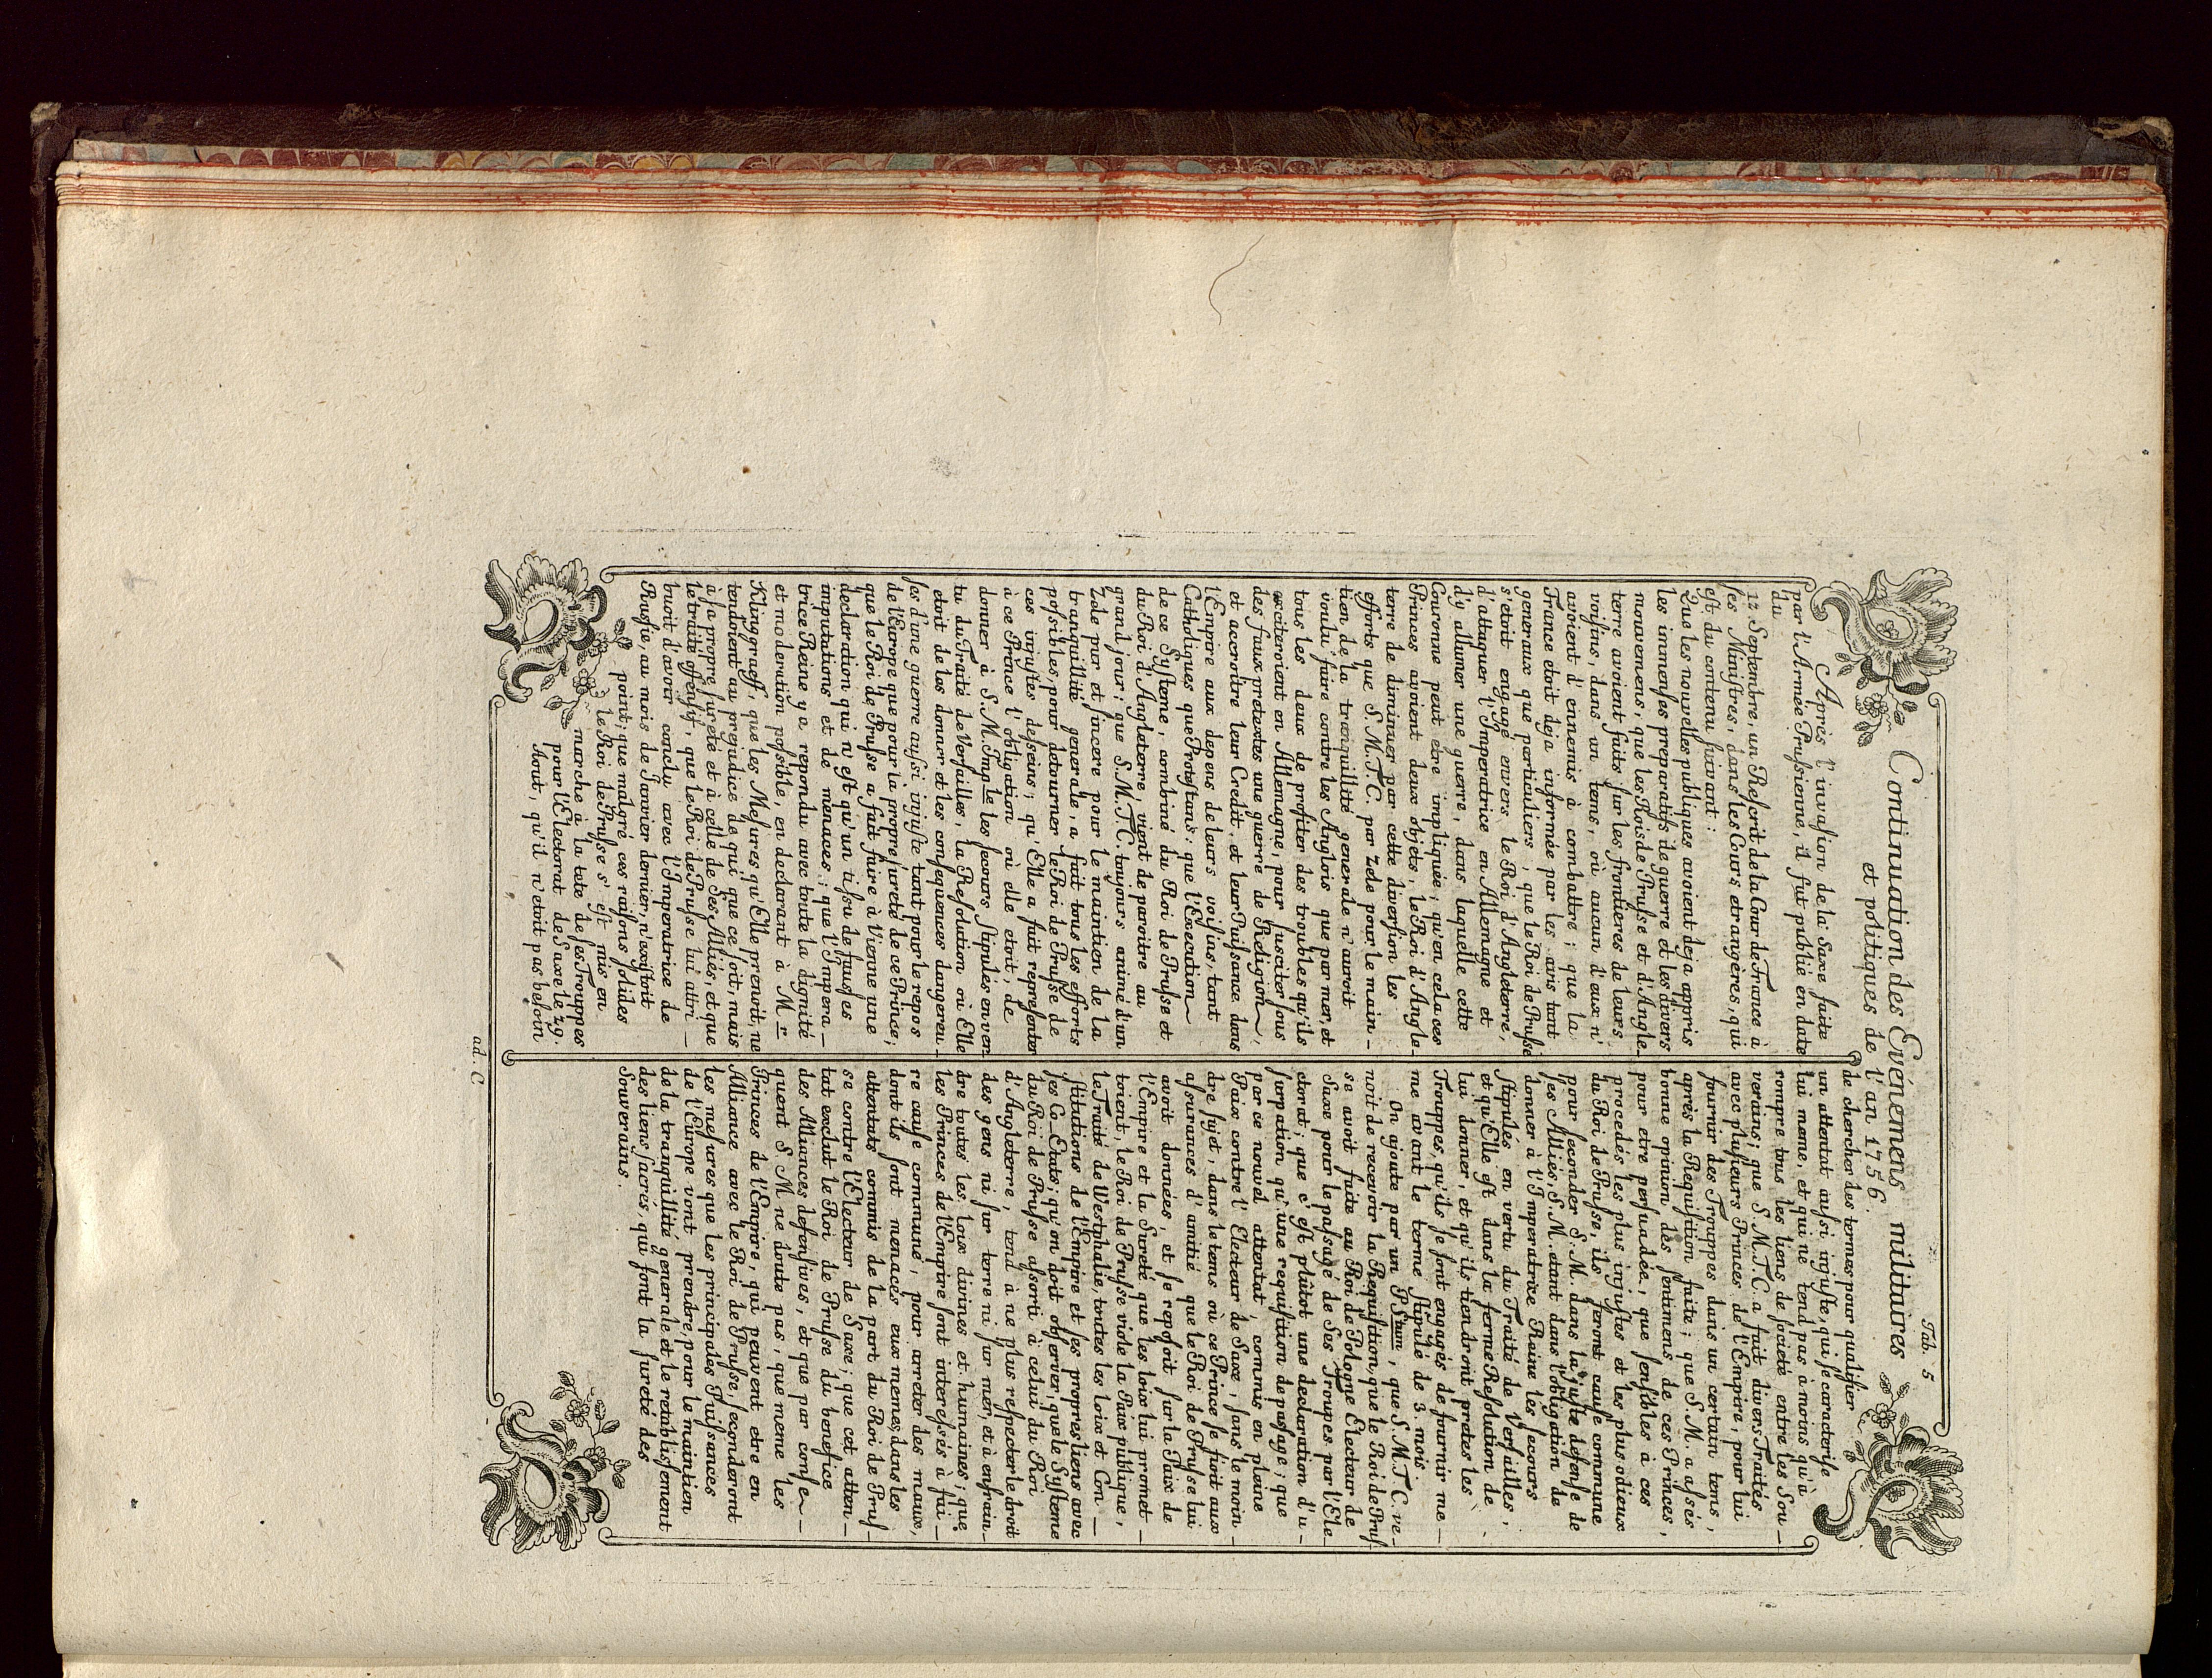 Tab. 5
Continuation des Evénemens militaires
et politiques de l'an 1756.
Aprés l'invasion de la Saxe faite
par l'Armée Prussienne, il fut publié en date du
12. Septembre, un Rescrit de la Cour de France à
ses Ministres, dans les Cours etrangères, qui
est du contenu suivant:
Que les nouvelles publiques avoient deja appris
les immenses preparatifs de guerre et les divers
mouvemens, que les Rois de Prusse et d'Angle-
terre avoient faits sur les frontieres de leurs
voisins, dans un tems, où aucun d'eux n'
avoient d'ennemis à combattre; que la
France etoit deja informée par les avis tant
generaux que particuliers, que le Roi de Prusse
s'etoit engagé envers le Roi d'Angleterre,
d'attaquer l'Imperatrice en Allemagne et
d'y allumer une guerre, dans laquelle cette
Couronne peut etre impliquée; qu'en cela ces
Princes avoient deux objets, le Roi d'Angle-
terre de diminuer par cette diversion les
efforts que S.M.T.C. par zele pour le main-
tien de la tranquillité generale n'auroit
voulu faire contre les Anglois que par mer, et
tous les deux de profiter des troubles qu'ils
exciteroient en Allemagne, pour susciter sous
des faux pretextes une guerre de Religion,
et accroitre leur Credit, et leur Puissance dans
l'Empire aux depens de leurs voisins, tant
Catholiques que Protestans: que l'Execution
de ce Systeme, combiné du Roi de Prusse et
du Roi d'Angleterre, vient de paroitre au
grand jour; que S.M.T.C. toujours animé d'un
Zele pur et sincere pour le maintien de la
tranquillité generale, a fait tous les efforts
possibles, pour detourner le Roi de Prusse de
ces injustes desseins; qu'Elle a fait representer
à ce Prince l'obligation où elle etoit, de
donner à S.M. Imple les secours stipulés en ver-
tu du Traité de Versailles, la Resolution où Elle
etoit de les donner et les consequences dangereu-
ses d'une guerre aussi injuste tant pour le repos
de l'Europe que pour la propre sureté de ce Prince;
que le Roi de Prusse a fait faire à Vienne une
declaration qui n'est qu'un tissu de fausses
imputations et de menaces; que l'Impera-
trice Reine y a repondu avec toute la dignité
et moderation possible, en declarant à Mr
Klinggraeff, que les Mesures qu'Elle prenoit, ne
tendoient au prejudice de qui que ce soit, mais
à sa propre sureté et à celle de ses Alliés, et que
le traité offensif, que le Roi de Prusse lui attri-
buoit d'avoir conclu avec l'Imperatrice de
Russie, au mois de Janvier dernier, n'existoit
point; que malgré ces raisons solides
le Roi de Prusse s'est mis en
marche à la tete de ses Trouppes
pour l'Electorat de Saxe le 29.
Aout, qu'il n'etoit pas besoin
de chercher des termes pour qualifier
un attentat aussi injuste, qui se caracterise
lui meme, et qui ne tend pas à moins qu'à
rompre tous les liens de societé entre les Sou-
verains; que S.M.T.C. a fait divers Traités
avec plusieurs Princes de l'Empire, pour lui
fournir des Trouppes dans un certain tems,
après la Requisition faite; que S.M. a assés
bonne opinion des sentimens de ces Princes,
pour etre persuadée, que sensibles à ces
procedés les plus injustes et les plus odieux
du Roi de Prusse, ils feront cause commune
pour seconder S.M. dans la juste defense de
ses Alliés, S.M. etant dans l'obligation de
donner à l'Imperatrice Reine les secours
stipulés en vertu du Traité de Versailles,
et qu'Elle est dans la ferme Resolution de
lui donner, et qu'ils tiendront pretes les
Trouppes, qu'ils se sont engagés de fournir me-
me avant le terme stipulé de 3. mois.
On ajoute par un P.Stum, que S.M.T.C. ve-
noit de recevoir la Requisition, que le Roi de Prus-
se avoit faite au Roi de Pologne Electeur de
Saxe pour le passage de Ses Troupes par l'Ele-
ctorat; que c'est plûtot une declaration d'u-
surpation qu'une requisition de passage; que
par ce nouvel attentat, commis en pleine
Paix contre l'Electeur de Saxe, sans le moin-
dre sujet, dans le tems où ce Prince se fioit aux
assurances d'amitié que le Roi de Prusse lui
avoit données, et se reposoit sur la Paix de
l'Empire et la Sureté que les loix lui promet-
toient, le Roi de Prusse viole la Paix publique,
le Traité de Westphalie, toutes les loix et Con-
stitutions de l'Empire et ses propres liens avec
ses Co-Etats; qu'on doit observer, que le Systeme
du Roi de Prusse assorti à celui du Roi
d'Angleterre, tend à ne plus respecter le droit
des gens ni sur terre ni sur mer, et à enfrain-
dre toutes les loix divines et humaines; que
les Princes de l'Empire sont interessés à fai-
re cause commune, pour arreter des maux,
dont ils sont menacés eux memes, dans les
attentats commis de la part du Roi de Prus-
se contre l'Electeur de Saxe; que cet atten-
tat exclut le Roi de Prusse du benefice
des Alliances defensives, et que par conse-
quent S M ne doute pas, que meme les
Princes de l'Empire, qui peuvent etre en
Alliance avec le Roi de Prusse, seconderont
les mesures que les principales Puissances
de l'Europe vont prendre, pour le maintien
de la tranquillité generale et le retablissement
des liens sacrés, qui font la sureté des
Souverains.
ad. C